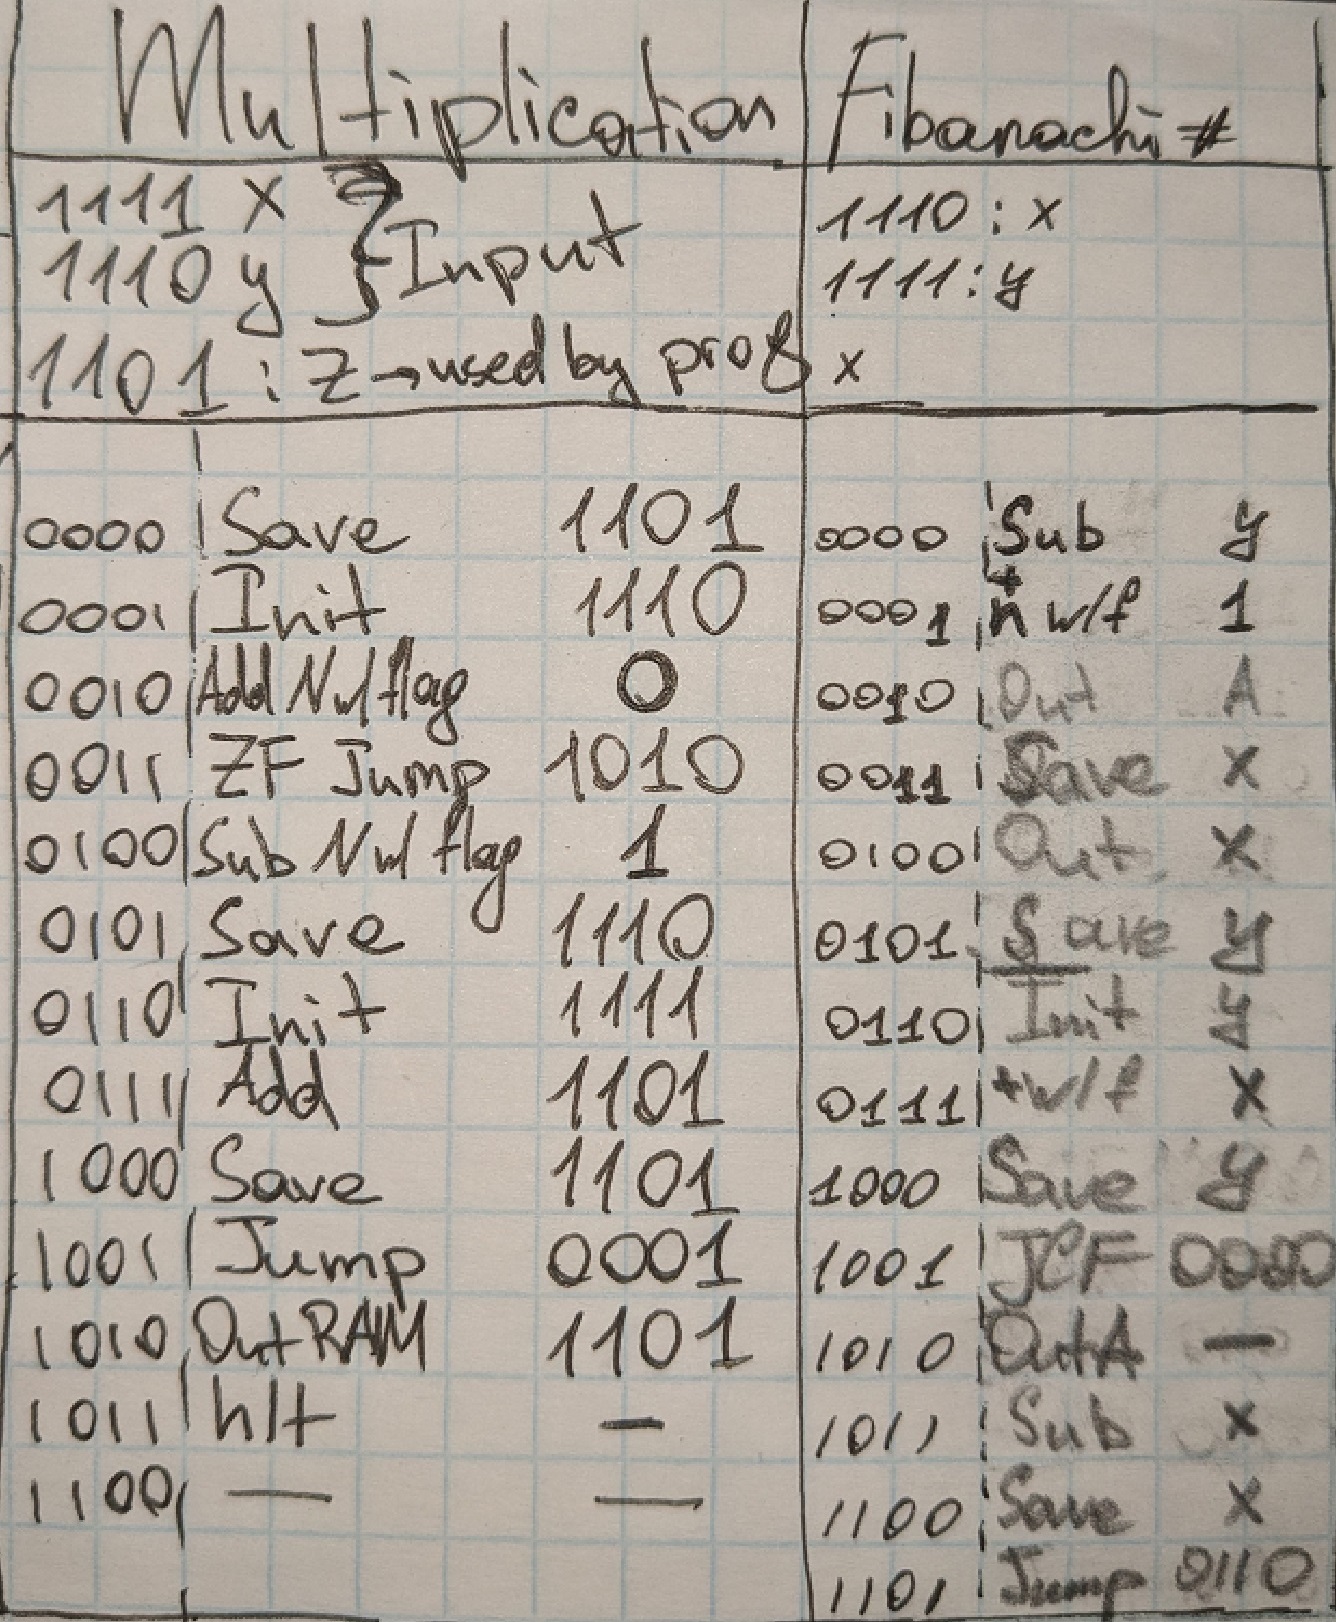 Multiplication
1111 x } Input
1110 y
1101 : Z → used by prog
0000 Save 1101
0001 Init 1110
0010 Add Nw/flag 0
0011 ZF Jump 1010
0100 Sub Nw/flag 1
0101 Save 1110
0110 Init 1111
0111 Add 1101
1000 Save 1101
1001 Jump 0001
1010 Out RAM 1101
1011 hlt —
1100 — —
Fibanachi #
1110 : x
1111 : y
x
0000 Sub y
0001 + n w/f 1
0010 Out A
0011 Save x
0100 Out x
0101 Save y
0110 Init y
0111 + w/f x
1000 Save y
1001 JCF 0000
1010 OutA —
1011 Sub x
1100 Save x
1101 Jump 0110